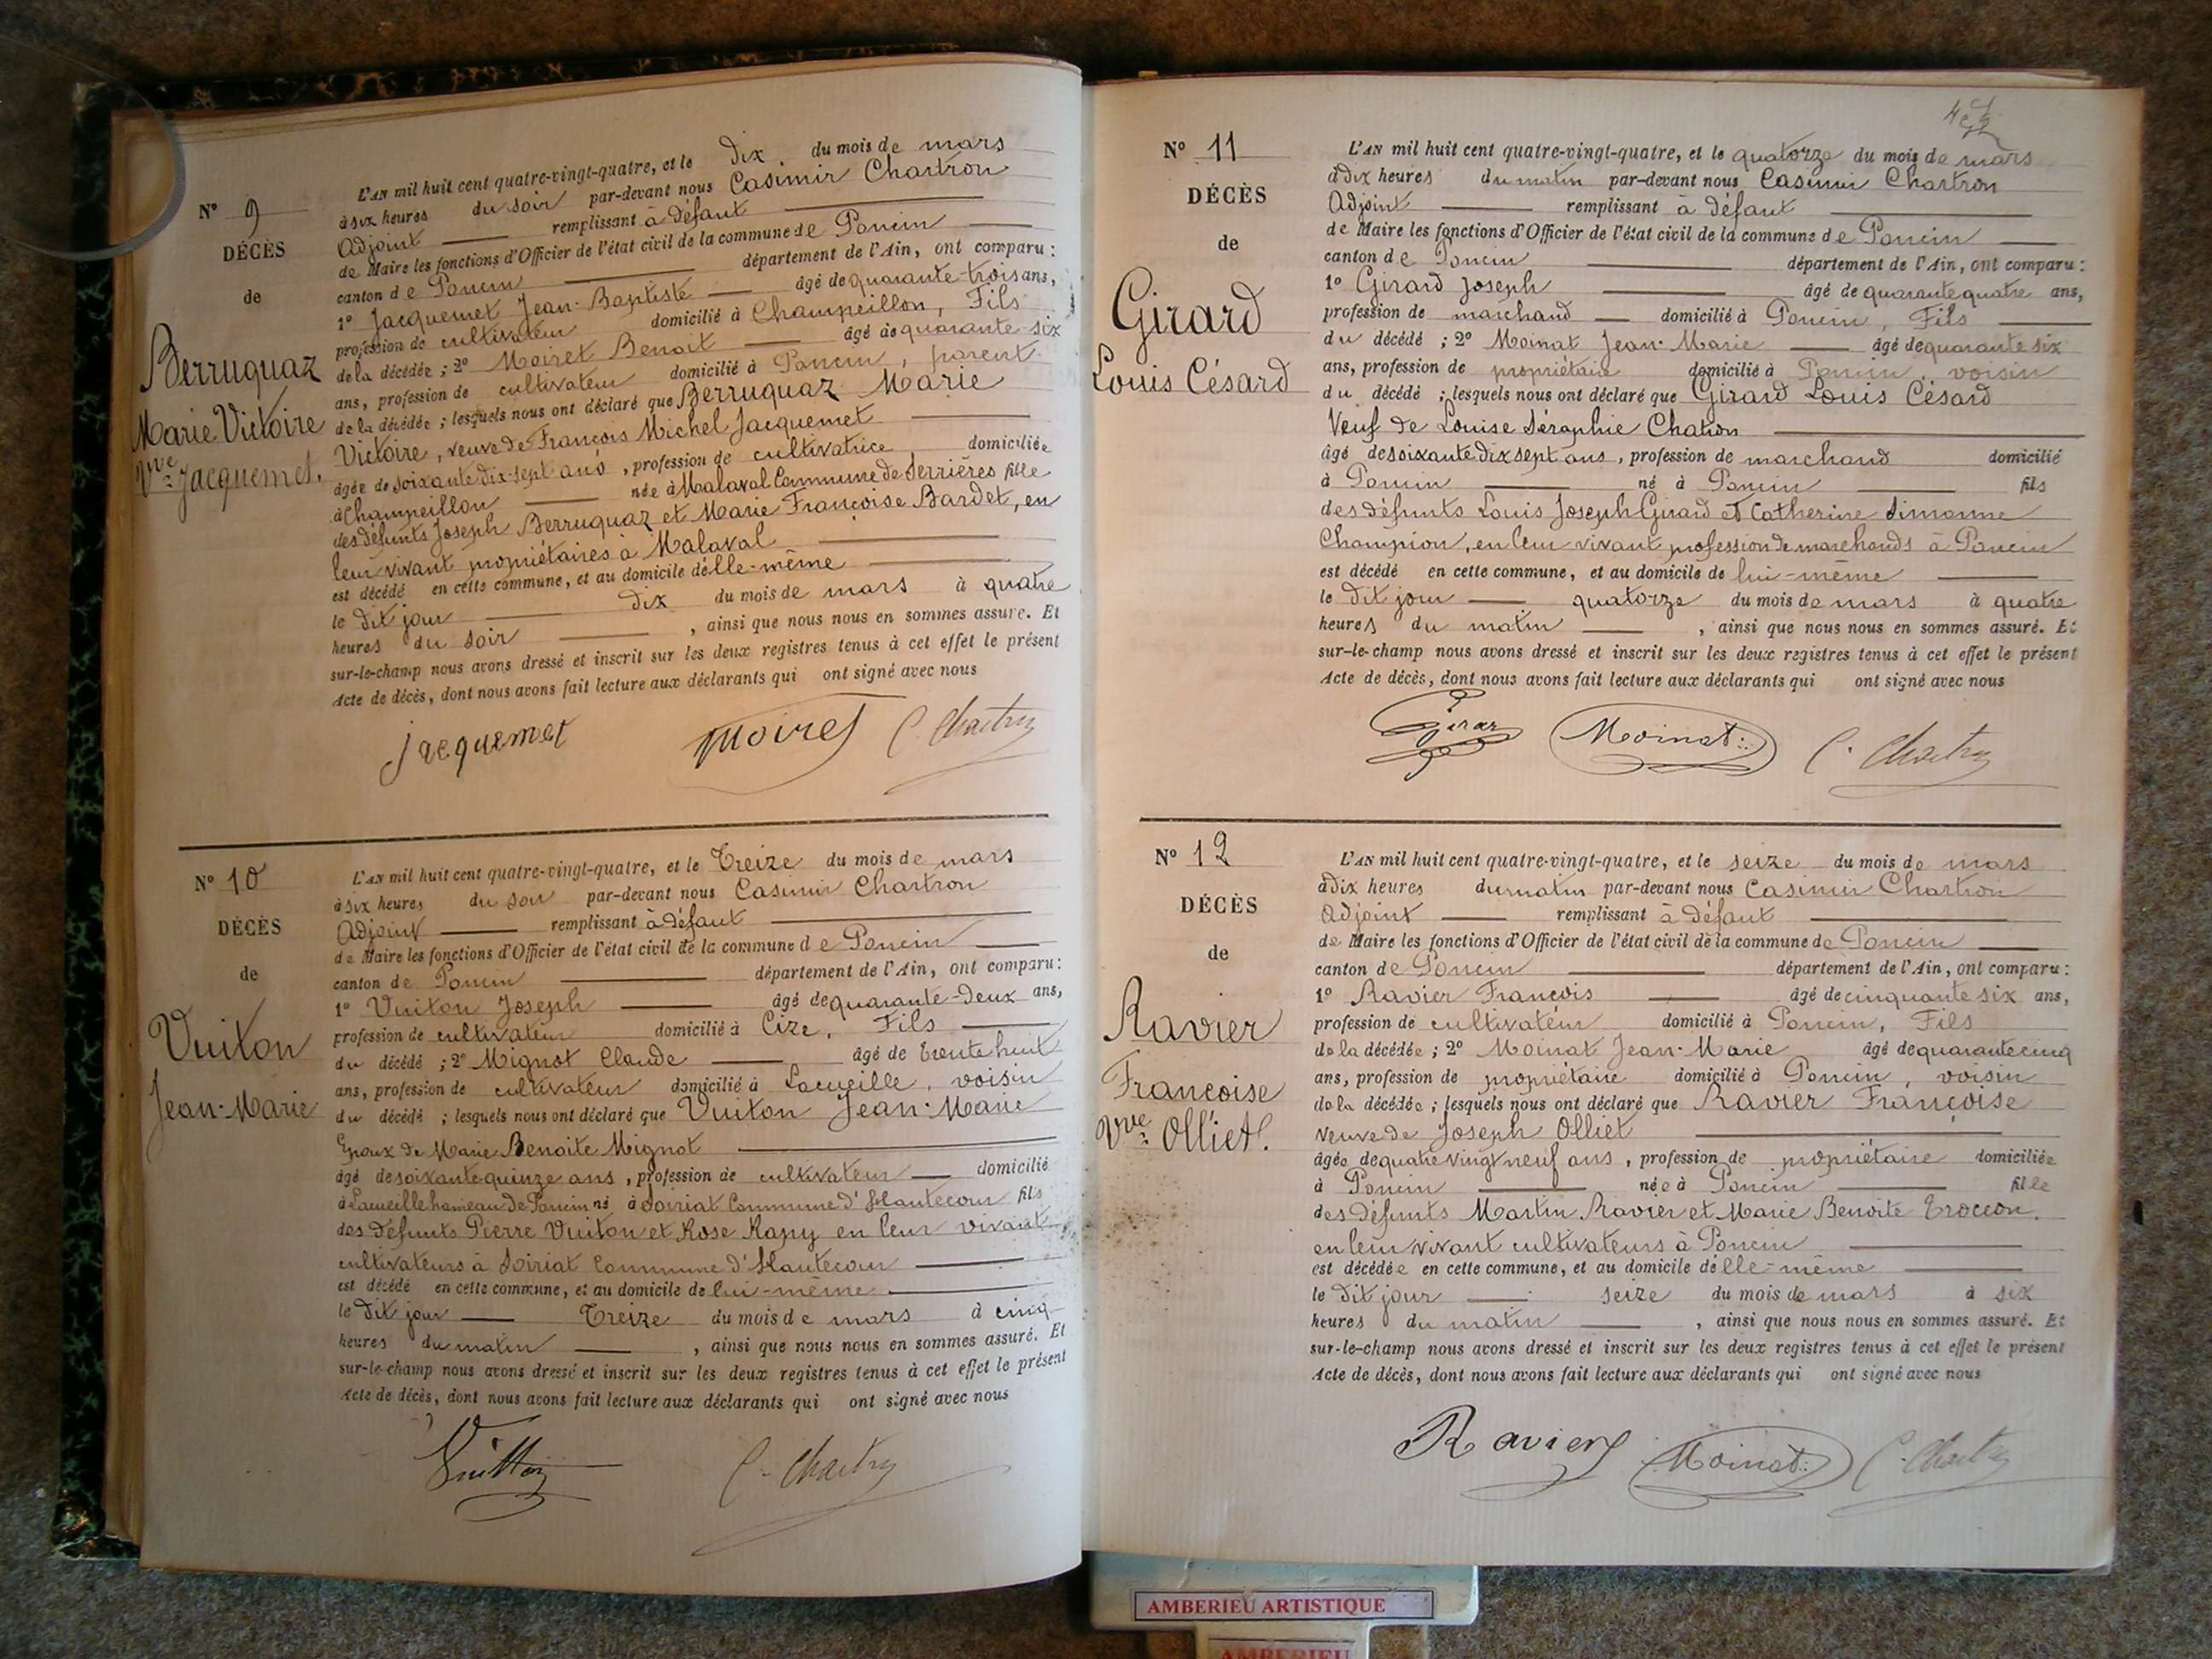 Nº 9
DÉCÈS
de
Berruquaz
Marie Victoire
Vve Jacquemet.
L'AN mil huit cent quatre-vingt-quatre, et le dix du mois de mars
à six heures du soir par-devant nous Casimir Chartron
Adjoint remplissant à défaut
de Maire les fonctions d'Officier de l'état civil de la commune de Poncin
canton de Poncin département de l'Ain, ont comparu :
1º Jacquemet Jean-Baptiste âgé de quarante-trois ans,
profession de cultivateur domicilié à Champeillon, Fils
de la décédée ; 2º Moiret Benoit âgé de quarante six
ans, profession de cultivateur domicilié à Poncin, parent
de la décédée ; lesquels nous ont déclaré que Berruquaz Marie
Victoire, veuve de François Michel Jacquemet
âgée de soixante dix-sept ans, profession de cultivatrice domiciliée
à Champeillon née à Malaval Commune de Serrières fille
des défunts Joseph Berruquaz et Marie Françoise Bardet, en
leur vivant propriétaires à Malaval
est décédé en cette commune, et au domicile d'elle-même
le dit jour dix du mois de mars à quatre
heures du soir , ainsi que nous nous en sommes assuré. Et
sur-le-champ nous avons dressé et inscrit sur les deux registres tenus à cet effet le présent
Acte de décès, dont nous avons fait lecture aux déclarants qui ont signé avec nous
Jacquemet Moiret C. Chartron
Nº 10
DÉCÈS
de
Vuiton
Jean-Marie
L'AN mil huit cent quatre-vingt-quatre, et le Treize du mois de mars
à six heures du soir par-devant nous Casimir Chartron
Adjoint remplissant à défaut
de Maire les fonctions d'Officier de l'état civil de la commune de Poncin
canton de Poncin département de l'Ain, ont comparu :
1º Vuiton Joseph âgé de quarante-deux ans,
profession de cultivateur domicilié à Cize, Fils
du décédé ; 2º Mignot Claude âgé de Trente huit
ans, profession de cultivateur domicilié à Lacueille, voisin
du décédé ; lesquels nous ont déclaré que Vuiton Jean-Marie
Epoux de Marie Benoite Mignot
âgé de soixante quinze ans, profession de cultivateur domicilié
à Lacueille hameau de Poncin né à Soiriat Commune d'Hautecour fils
des défunts Pierre Vuiton et Rose Kapy en leur vivant
cultivateurs à Soiriat Commune d'Hautecour
est décédé en cette commune, et au domicile de lui-même
le dit jour Treize du mois de mars à cinq
heures du matin , ainsi que nous nous en sommes assuré. Et
sur-le-champ nous avons dressé et inscrit sur les deux registres tenus à cet effet le présent
Acte de décès, dont nous avons fait lecture aux déclarants qui ont signé avec nous
Vuitton C. Chartron
Nº 11
DÉCÈS
de
Girard
Louis Césard
L'AN mil huit cent quatre-vingt-quatre, et le quatorze du mois de mars
à dix heures du matin par-devant nous Casimir Chartron
Adjoint remplissant à défaut
de Maire les fonctions d'Officier de l'état civil de la commune de Poncin
canton de Poncin département de l'Ain, ont comparu :
1º Girard Joseph âgé de quarante quatre ans,
profession de marchand domicilié à Poncin, Fils
du décédé ; 2º Moinat Jean-Marie âgé de quarante six
ans, profession de propriétaire domicilié à Poncin, voisin
du décédé ; lesquels nous ont déclaré que Girard Louis Césard
Veuf de Louise Séraphie Chation
âgé de soixante dix sept ans, profession de marchand domicilié
à Poncin né à Poncin fils
des défunts Louis Joseph Girard et Catherine Simonne
Champion, en leur vivant profession de marchands à Poncin
est décédé en cette commune, et au domicile de lui-même
le dit jour quatorze du mois de mars à quatre
heures du matin , ainsi que nous nous en sommes assuré. Et
sur-le-champ nous avons dressé et inscrit sur les deux registres tenus à cet effet le présent
Acte de décès, dont nous avons fait lecture aux déclarants qui ont signé avec nous
Girar Moinat C. Chartron
Nº 12
DÉCÈS
de
Ravier
Françoise
Vve Olliet.
L'AN mil huit cent quatre-vingt-quatre, et le seize du mois de mars
à dix heures du matin par-devant nous Casimir Chartron
Adjoint remplissant à défaut
de Maire les fonctions d'Officier de l'état civil de la commune de Poncin
canton de Poncin département de l'Ain, ont comparu :
1º Ravier François âgé de cinquante six ans,
profession de cultivateur domicilié à Poncin, Fils
de la décédée ; 2º Moinat Jean-Marie âgé de quarante cinq
ans, profession de propriétaire domicilié à Poncin, voisin
de la décédée ; lesquels nous ont déclaré que Ravier Françoise
veuve de Joseph Olliet
âgée de quatre vingt neuf ans, profession de propriétaire domiciliée
à Poncin née à Poncin fille
des défunts Martin Ravier et Marie Benoite Troccon.
en leur vivant cultivateurs à Poncin
est décédée en cette commune, et au domicile d'elle-même
le dit jour seize du mois de mars à six
heures du matin , ainsi que nous nous en sommes assuré. Et
sur-le-champ nous avons dressé et inscrit sur les deux registres tenus à cet effet le présent
Acte de décès, dont nous avons fait lecture aux déclarants qui ont signé avec nous
Ravier Moinat C. Chartron
AMBERIEU ARTISTIQUE
AMBERIEU